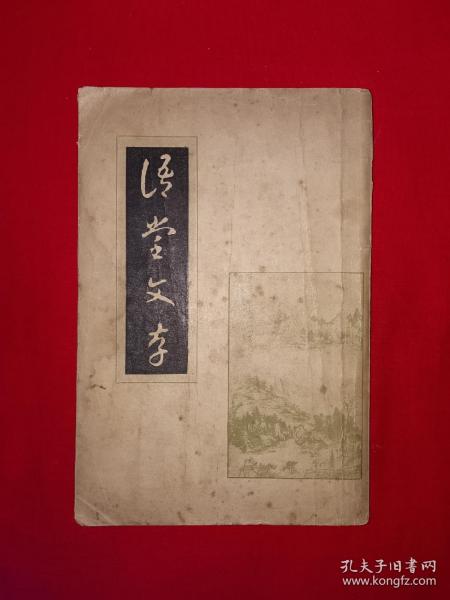 语堂文存
孔夫子旧书网
www.kongfz.com